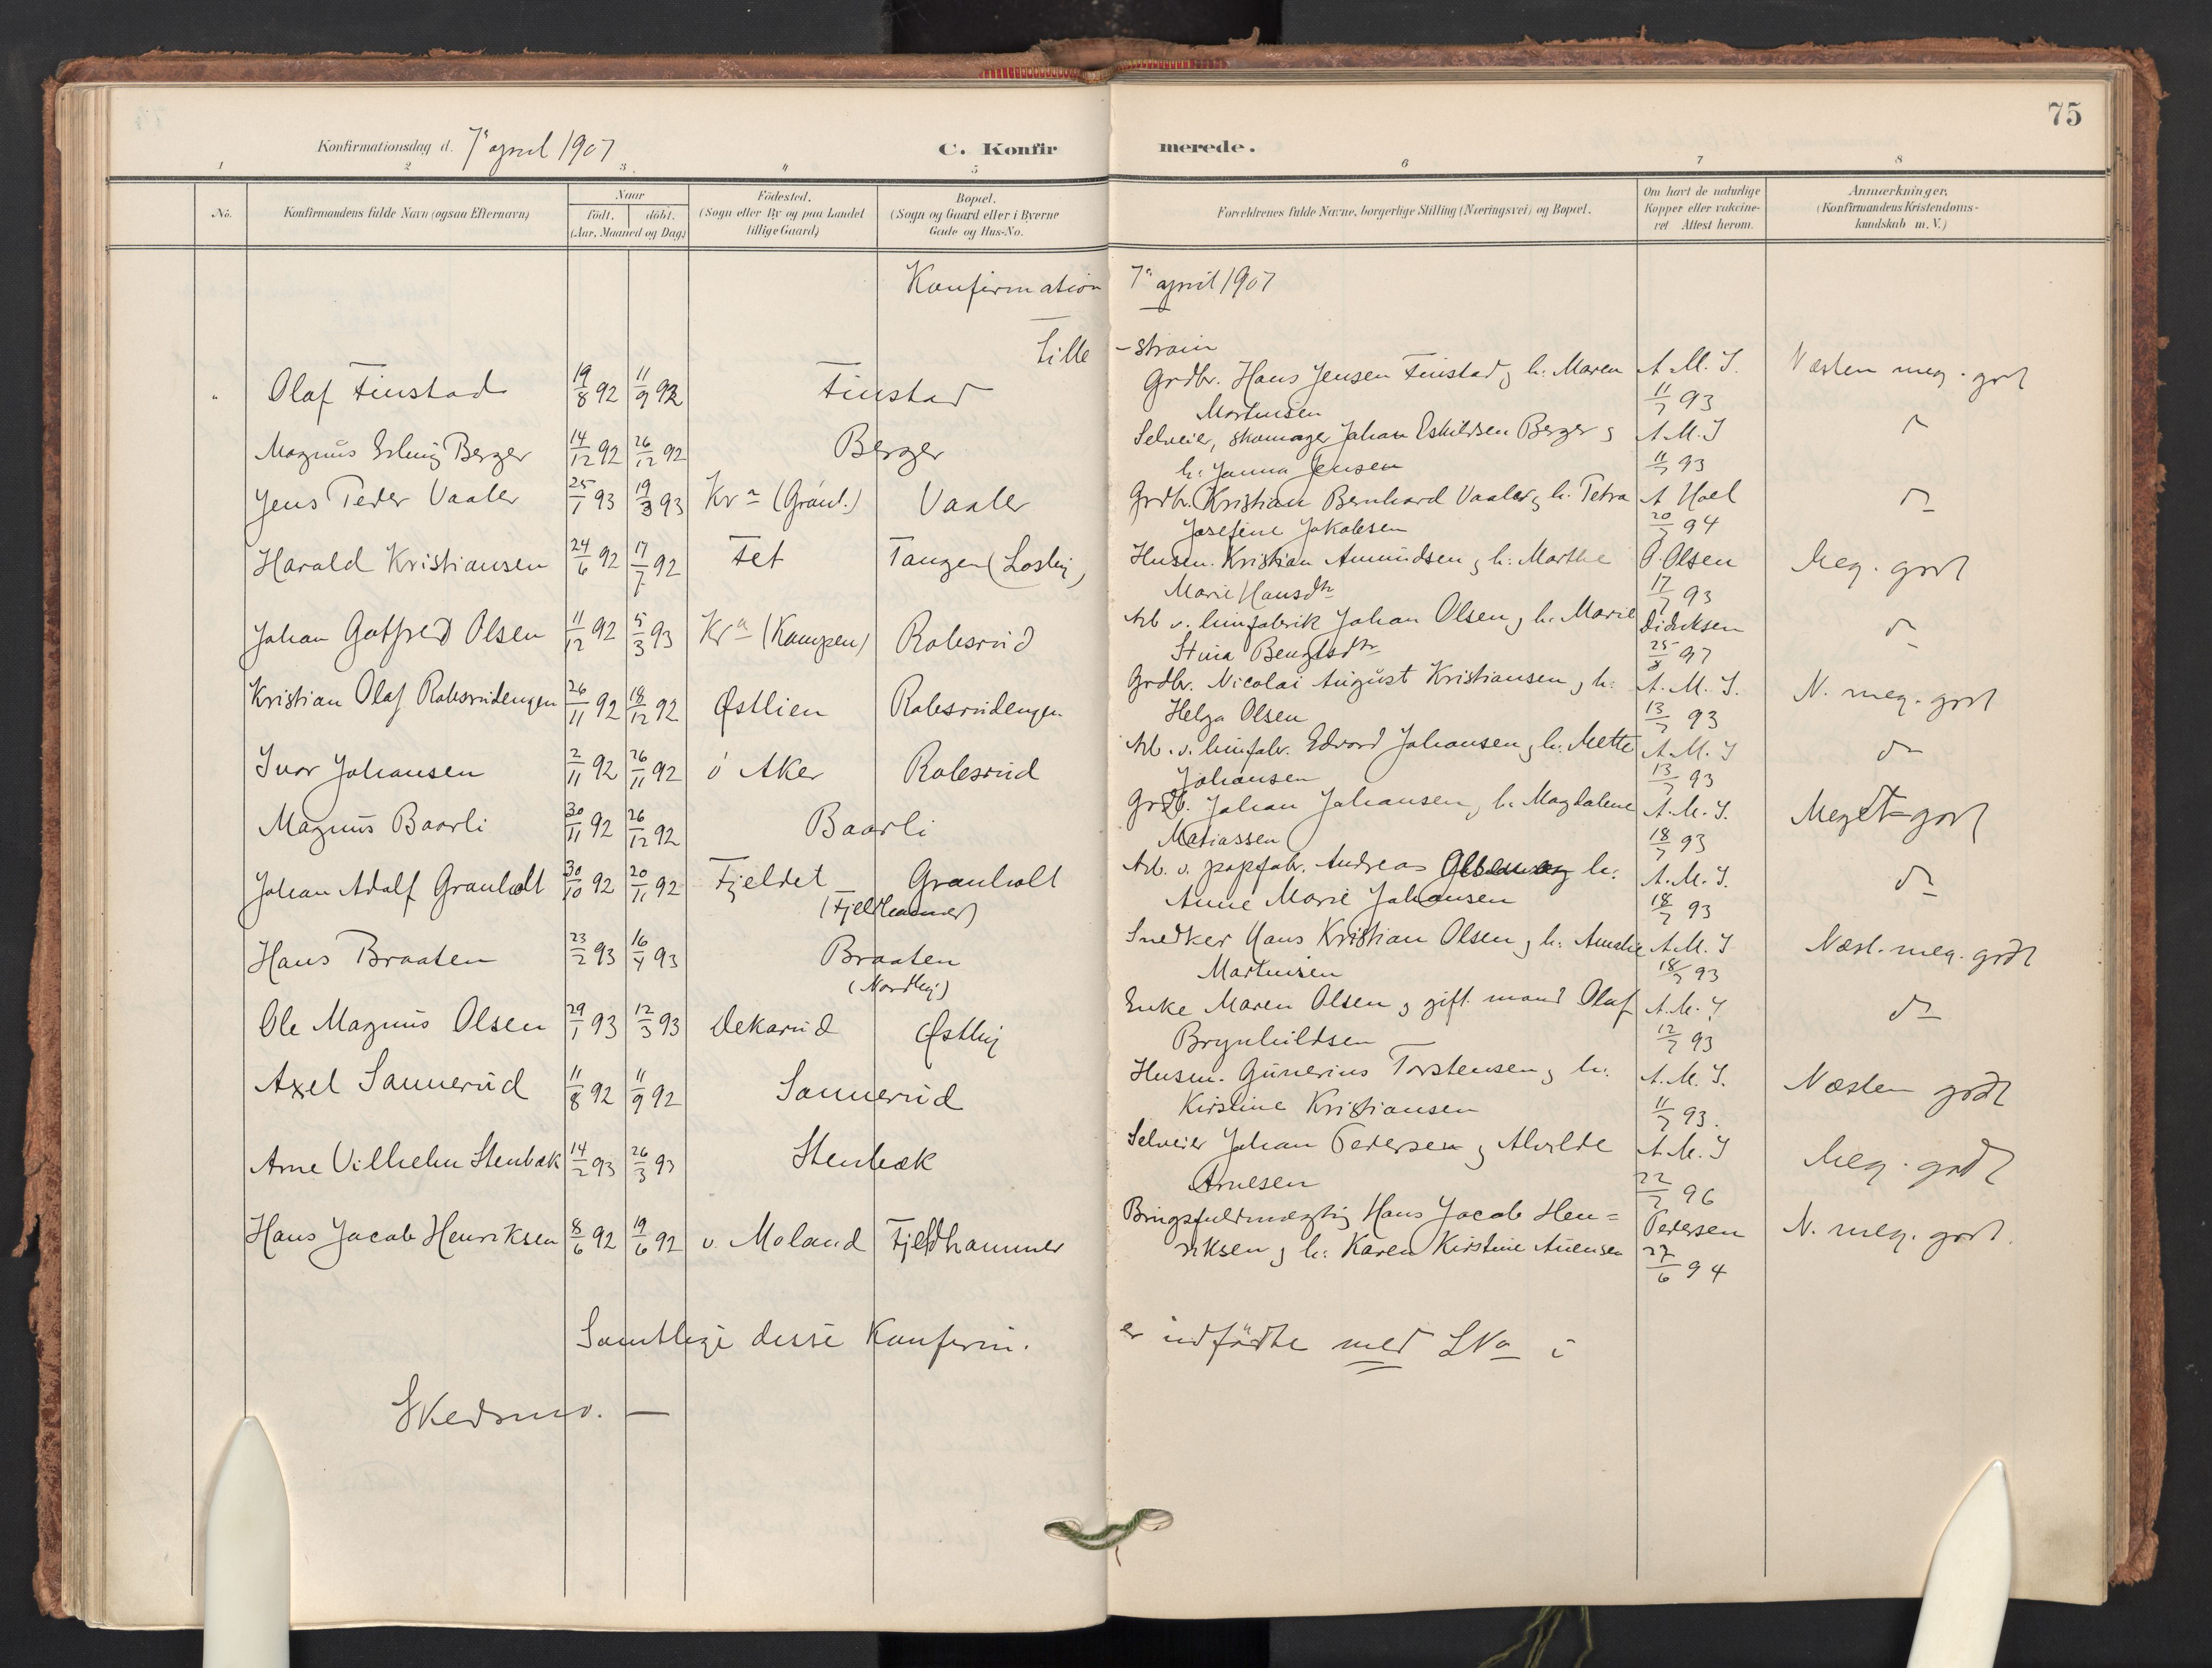 75
Konfirmationsdag d. 7de april 1907 C. Konfirmerede.
1 2 3. 4 5 6 7 8
No. Konfirmandens fulde Navn (ogsaa Efternavn) Naar født. døbt. (Aar, Maaned og Dag.) Fødested. (Sogn eller By og paa Landet tillige Gaard) Bopæl. (Sogn og Gaard eller i Byerne Gade og Hus-No. Forældrenes fulde Navne, borgerlige Stilling (Næringsvei) og Bopæl. Om havt de naturlige Kopper eller vakcineret Attest herom. Anmærkninger. (Konfirmandens Kristendomskundskab m. V.)
Konfirmation 7de april 1907
Lille-strøm
Olaf Finstad 19/8 92 11/9 92 Finstad Grdbr. Hans Jensen Finstad og h: Maren Mortensen A. M. J. 11/7 93 Næsten meg. godt
Magnus Erling Berger 14/12 92 26/12 92 Berger Selveier, skomager Johan Eskildsen Berger og h: Janna Jensen A. M. J 11/7 93
Jens Peder Vaaler 25/1 93 19/3 93 Kra (Grønl.) Vaaler Grdbr. Kristian Bernhard Vaaler og h. Petra Josefine Jakobsen A Hoel 20/7 94 do
Harald Kristiansen 24/6 92 17/7 92 Fet Tangen (Losby) Husm. Kristian Amundsen og h: Marthe Marie Hansdtr O Olsen 17/7 93 Meg. godt
Johan Gotfred Olsen 11/12 92 5/3 93 Kra (Kampen) Robsrud Arb v. limfabrik Johan Olsen og h. Marie Stina Bengtsdtr Didriksen 25/8 97 do
Kristian Olaf Robsrudengen 26/11 92 18/12 92 Østlien Robsrudengen Grdbr. Nicolai August Kristiansen og h: Helga Olsen A. M. J. 13/7 93 N. meg. godt
Ivar Johansen 2/11 92 26/11 92 ø Aker Robsrud Arb. v. limfabr. Edvard Johansen og h. Mette Johansen A. M. J 13/7 93 do
Magnus Baarli 30/11 92 26/12 92 Baarli Grdb. Johan Johansen og h. Magdalene Matiassen A. M. J. 18/7 93 Meget godt
Johan Adolf Granholt 30/10 92 20/11 92 Fjeldet (Fjeldhammer) Granholt Arb. v. papfabr. Andreas h: Anne Marie Johansen A. M. J. 18/7 93 do
Hans Braaten 23/2 93 16/4 93 Braaten (Nordby) Snedker Hans Kristian Olsen og h: Amalie Martinsen A. M. J 18/7 93 Næst. meg. godt
Ole Magnus Olsen 29/1 93 12/3 93 Dekarud Østby Enke Maren Olsen og gift mand Olaf Brynhildsen A. M. J 12/7 93 do
Axel Sannerud 11/8 92 11/9 92 Sannerud Husm. Gunerius Torstensen og h: Kirstine Kristiansen A. M. J. 11/7 93. Næsten godt
Arne Vilhelm Stenbæk 14/2 93 26/3 93 Stenbæk Selveier Johan Pedersen og Alvilde Arnesen A. M. J 22/7 96 Meg. godt
Hans Jacob Henriksen 8/6 92 19/6 92 v. Moland Fjeldhammer Brugsfuldmægtig Hans Jacob Hen=riksen og h: Karen Kirstine Auensen Pedersen 27/6 94 N. meg. godt.
Samtlige disse Konfirm. er indførte med LNo i
Skedsmo. —